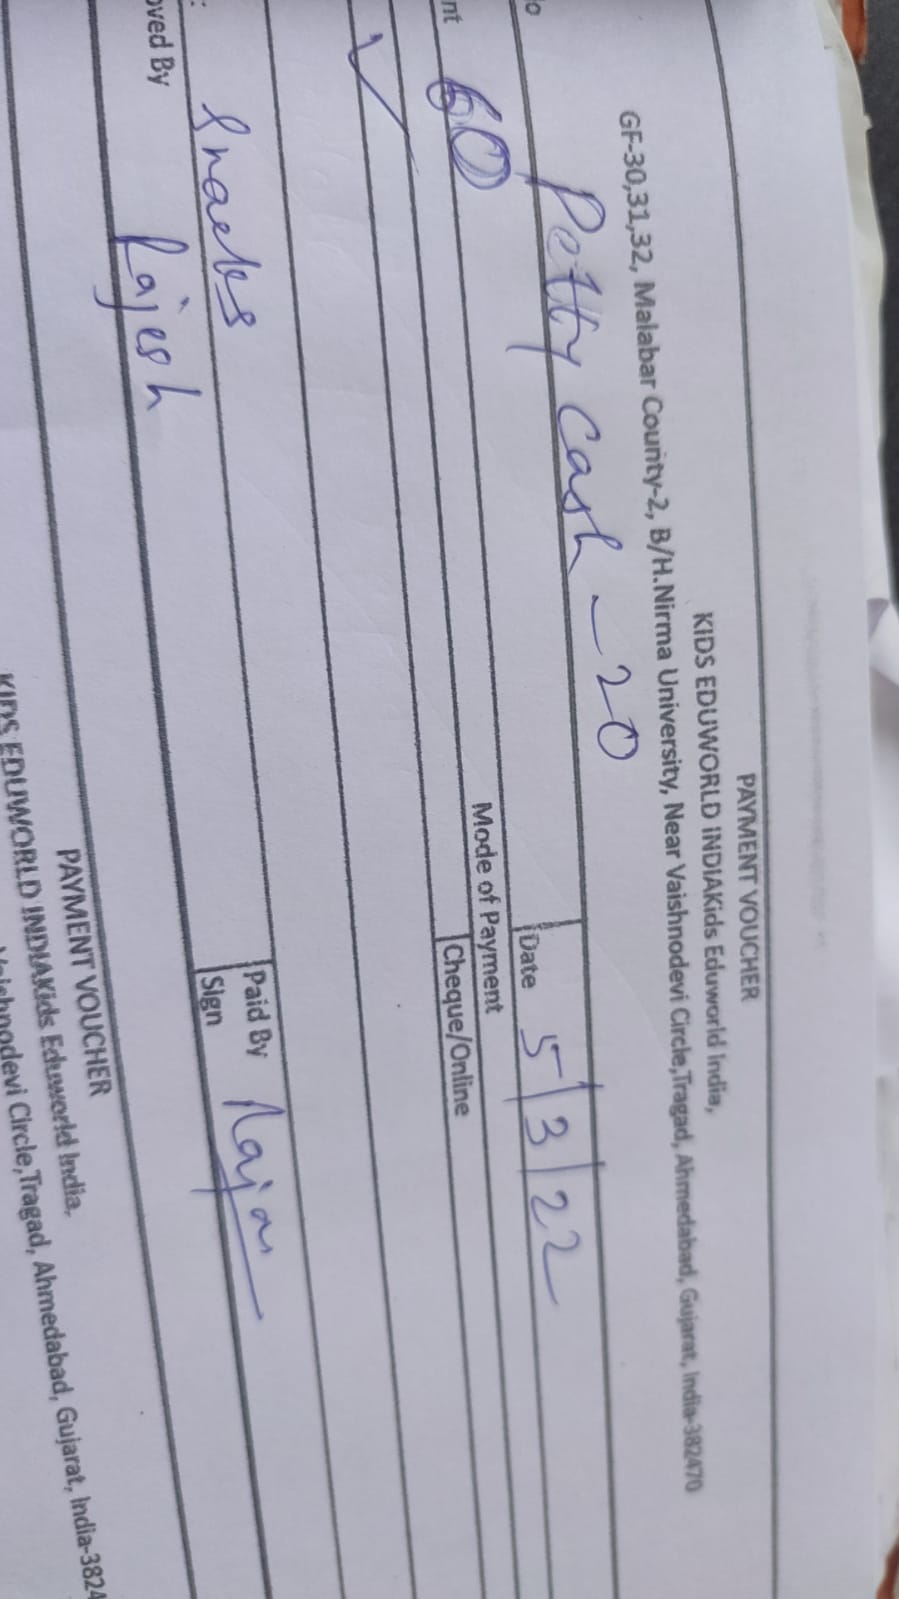 PAYMENT VOUCHER
KIDS EDUWORLD INDIAKids Eduworld India,
GF-30,31,32, Malabar County-2, B/H.Nirma University, Near Vaishnodevi Circle,Tragad, Ahmedabad, Gujarat, India-382470
o Petty Cash - 20 Date 5/3/22
nt 60 Mode of Payment
Cheque/Online
: Snacks Paid By Rajan
oved By Rajesh Sign
PAYMENT VOUCHER
KIDS EDUWORLD INDIAKids Eduworld India,
Vaishnodevi Circle,Tragad, Ahmedabad, Gujarat, India-3824